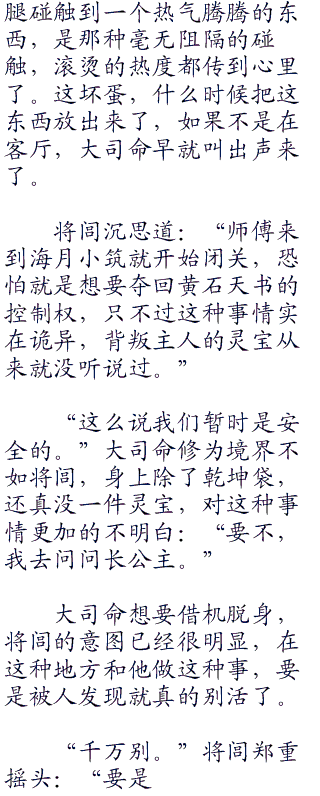 腿碰触到一个热气腾腾的东
西，是那种毫无阻隔的碰
触，滚烫的热度都传到心里
了。这坏蛋，什么时候把这
东西放出来了，如果不是在
客厅，大司命早就叫出声来
了。
将闾沉思道：“师傅来
到海月小筑就开始闭关，恐
怕就是想要夺回黄石天书的
控制权，只不过这种事情实
在诡异，背叛主人的灵宝从
来就没听说过。”
“这么说我们暂时是安
全的。”大司命修为境界不
如将闾，身上除了乾坤袋，
还真没一件灵宝，对这种事
情更加的不明白：“要不，
我去问问长公主。”
大司命想要借机脱身，
将闾的意图已经很明显，在
这种地方和他做这种事，要
是被人发现就真的别活了。
“千万别。”将闾郑重
摇头：“要是